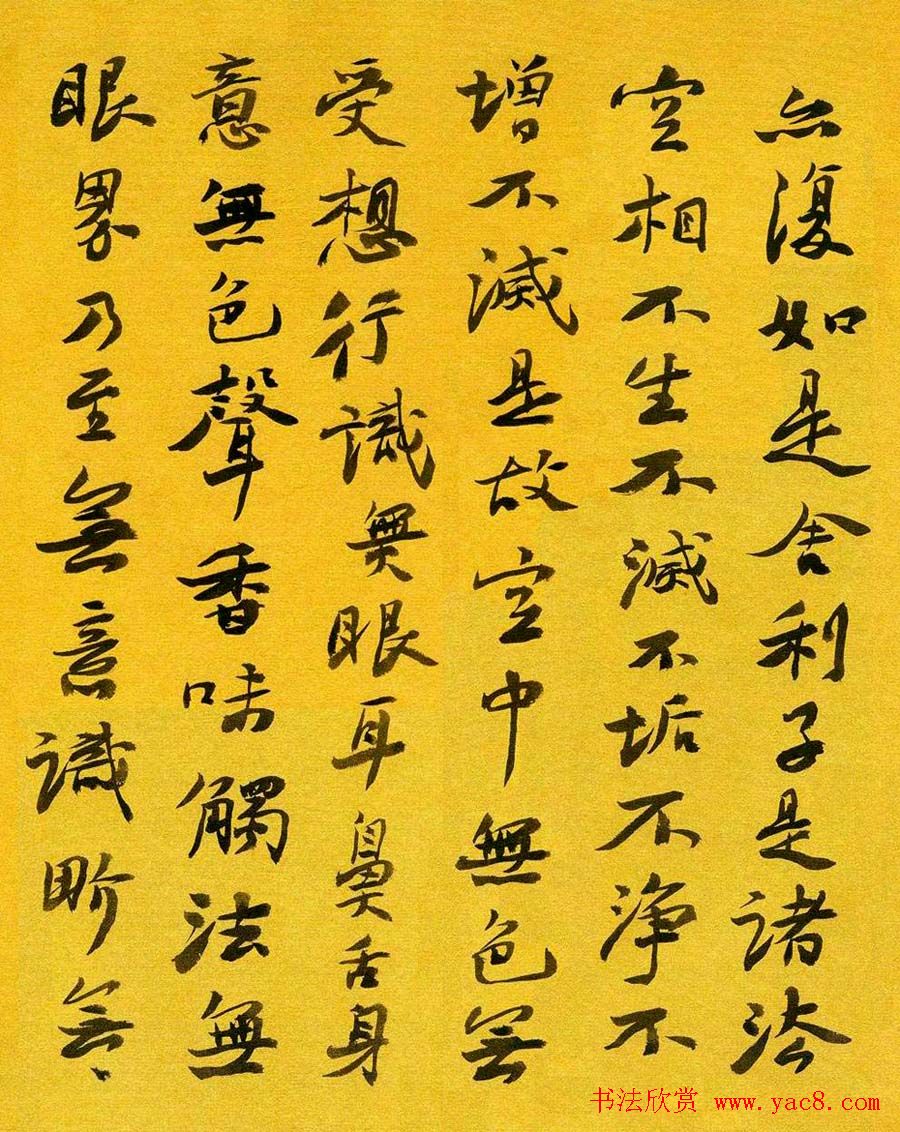 亦復如是舍利子是諸法
空相不生不滅不垢不淨不
增不滅是故空中無色無
受想行識無眼耳鼻舌身
意無色聲香味觸法無
眼界乃至無意識界無
书法欣赏 www.yac8.com